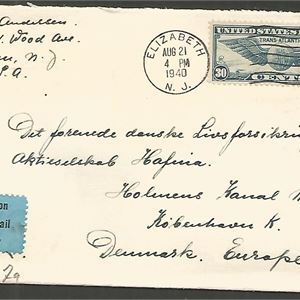 Andersen
Wood Ave.
N. J.
ELIZABETH
AUG 21
4 PM
1940
N. J.
UNITED STATES
TRANS-ATLANTIC
30 CENTS
Det forenede danske Livsforsikring
Aktieselskab Hafnia.
Holmens Kanal
København K.
Denmark. Europe
on
ail